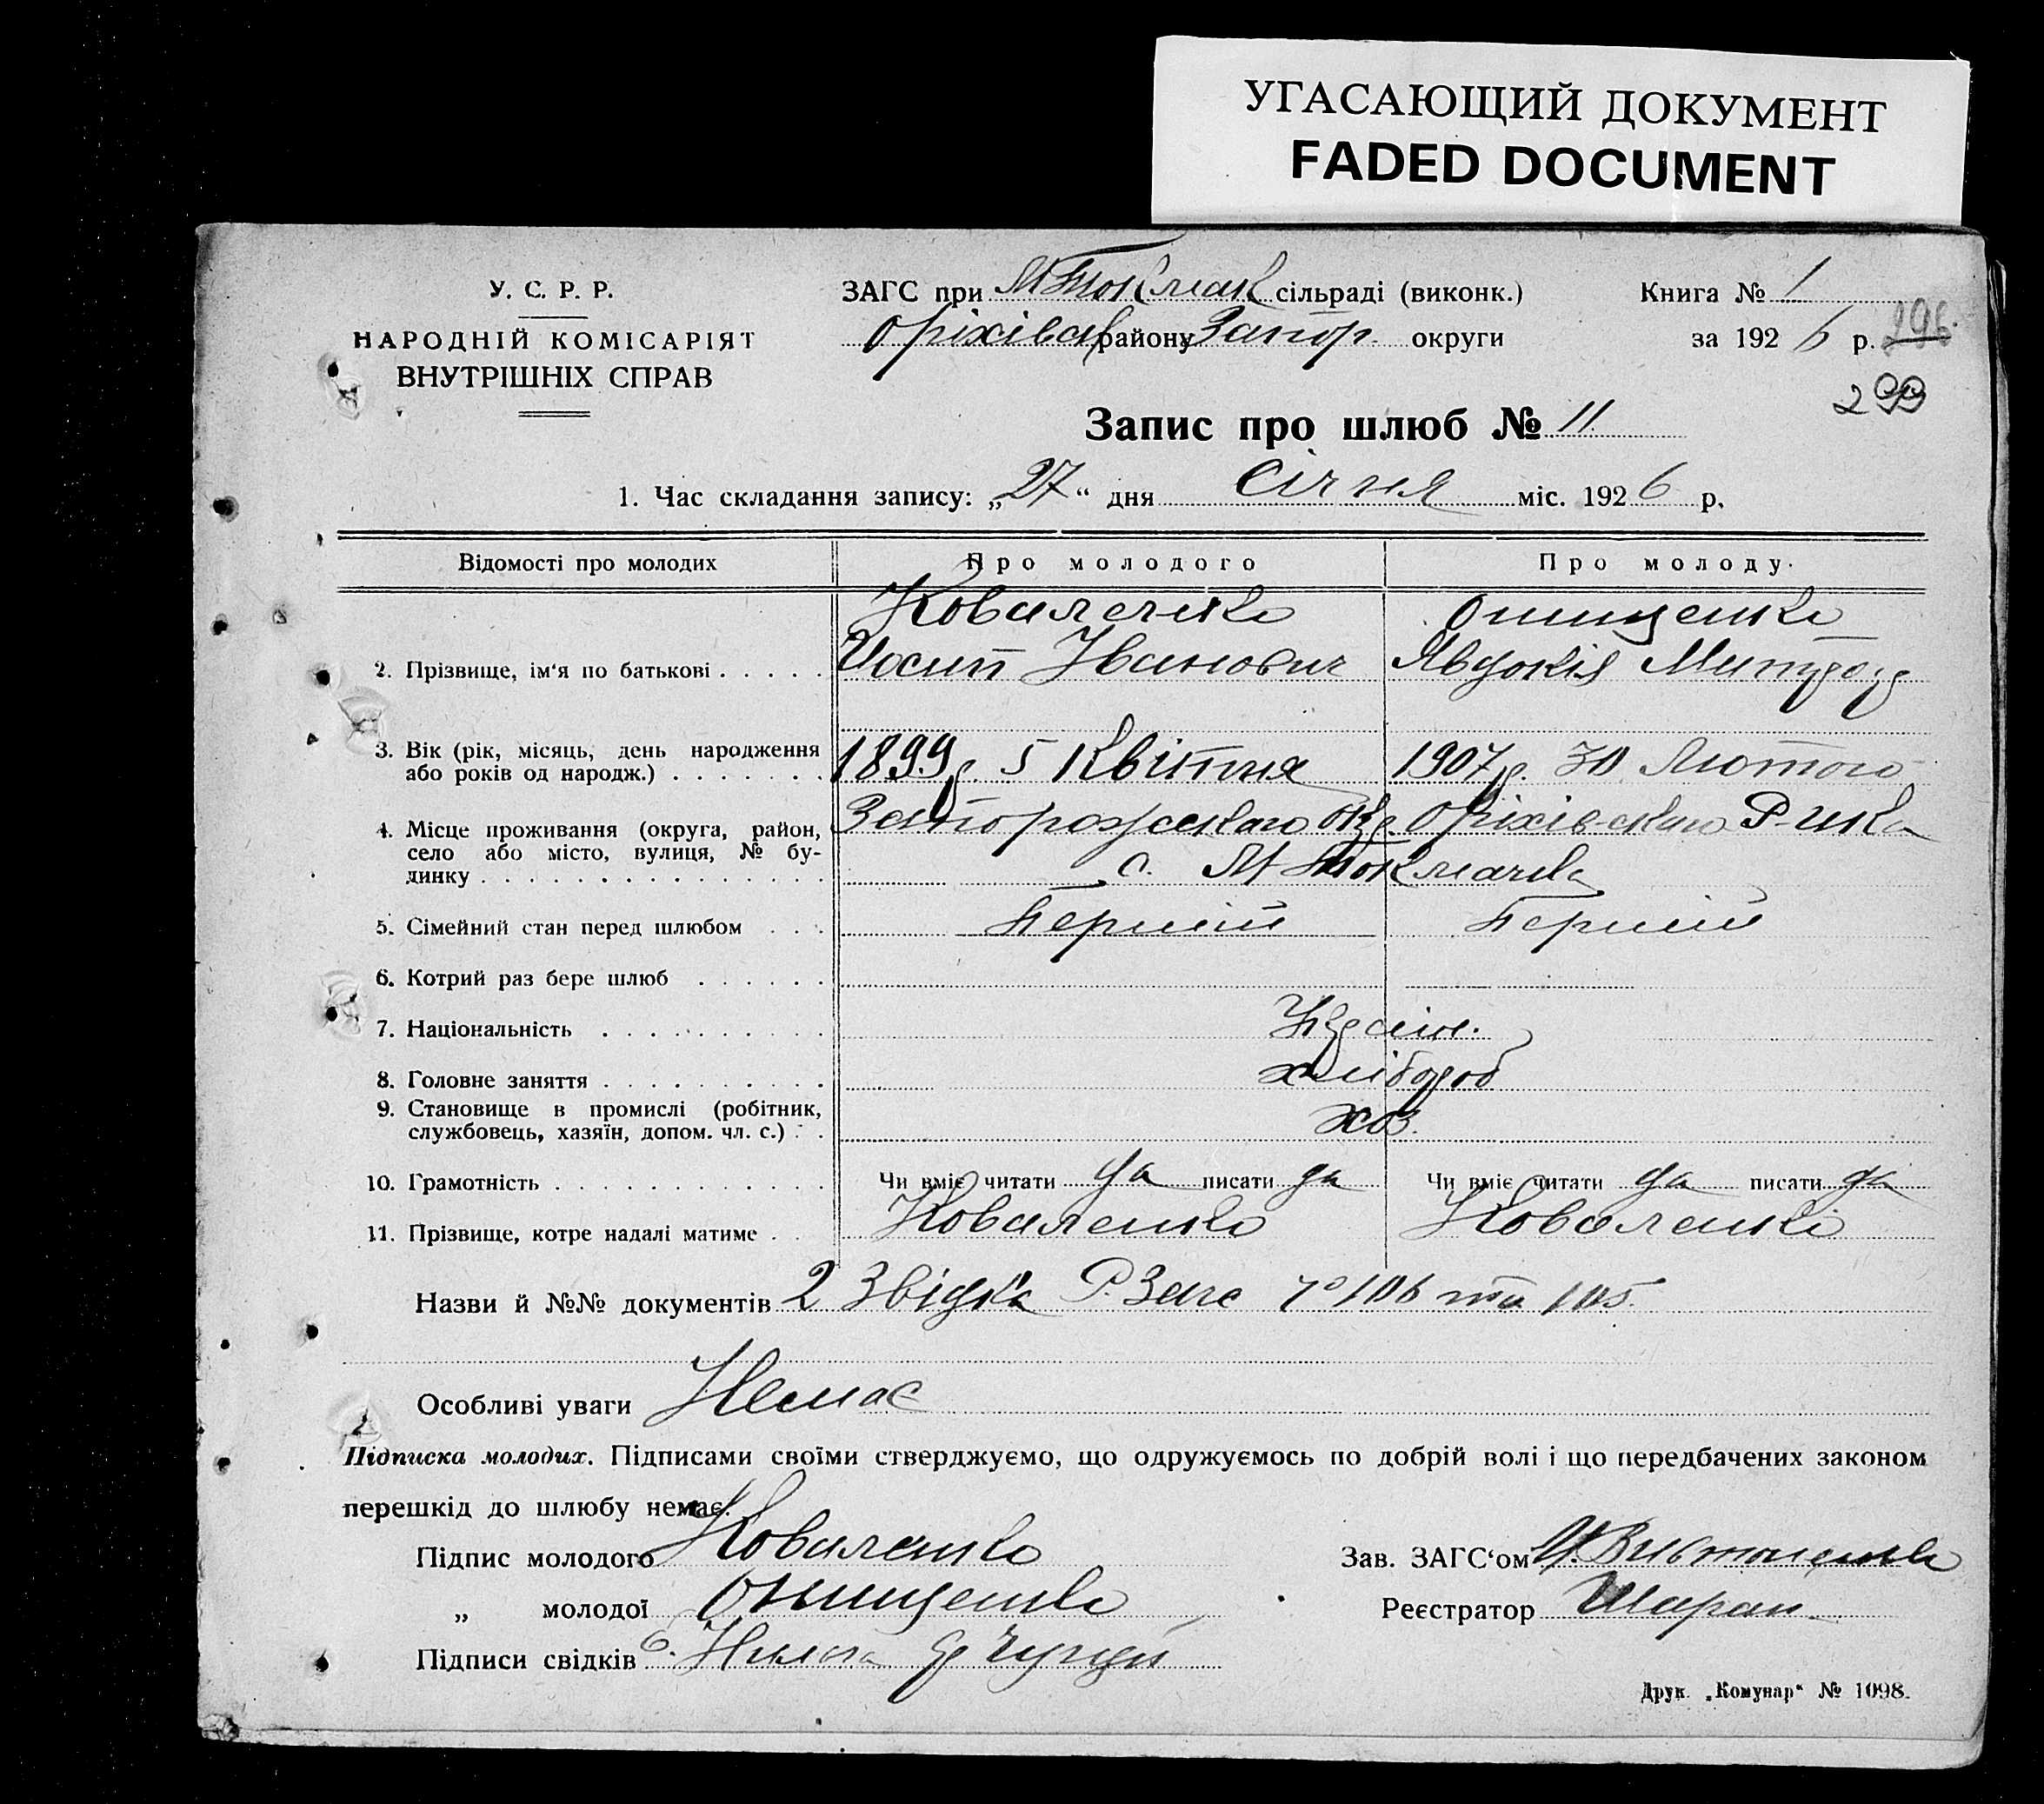 УГАСАЮЩИЙ ДОКУМЕНТ
FADED DOCUMENT
У. С. Р. Р.
НАРОДНІЙ КОМІСАРІЯТ
ВНУТРІШНІХ СПРАВ
ЗАГС при М Токмак сільраді (виконк.)
Оріхівск району Запор. округи
Книга № 1
за 1926 р. 296.
299
Запис про шлюб № 11
1. Час складання запису: „27“ дня Січня міс. 1926 р.
Відомості про молодих Про молодого Про молоду.
Коваленко Онищенко
2. Прізвище, ім'я по батькові . . . . . Иосип Іванович Явдокія
3. Вік (рік, місяць, день народження
або років од народж.) . . . . . . . 1899 р. 5 Квітня 1907 р. 30 Лютого
4. Місце проживання (округа, район,
село або місто, вулиця, № бу-
динку . . . . . . . . . . . . . . . Запорожского Окр. Оріхівского Р-нка
с. М Токмачка
5. Сімейний стан перед шлюбом . . . Перший Перший
6. Котрий раз бере шлюб . . . . . .
7. Національність . . . . . . . . . . Украін.
8. Головне заняття . . . . . . . . . . хлібороб
9. Становище в промислі (робітник,
службовець, хазяїн, допом. чл. с.) . . хоз.
10. Грамотність . . . . . . . . . . . . Чи вміє читати да писати да Чи вміє читати да писати да
11. Прізвище, котре надалі матиме . . . Коваленко Коваленко
Назви й №№ документів 2 Звідка Р. Загс 106 та 105.
Особливі уваги Немає
Підписка молодих. Підписами своїми стверджуємо, що одружуємось по добрій волі і що передбачених законом
перешкід до шлюбу немає.
Підпис молодого Коваленко
„ молодої Онищенко
Підписи свідків
Зав. ЗАГС‘ом
Реєстратор Шаран
Друк. „Комунар“ № 1098.